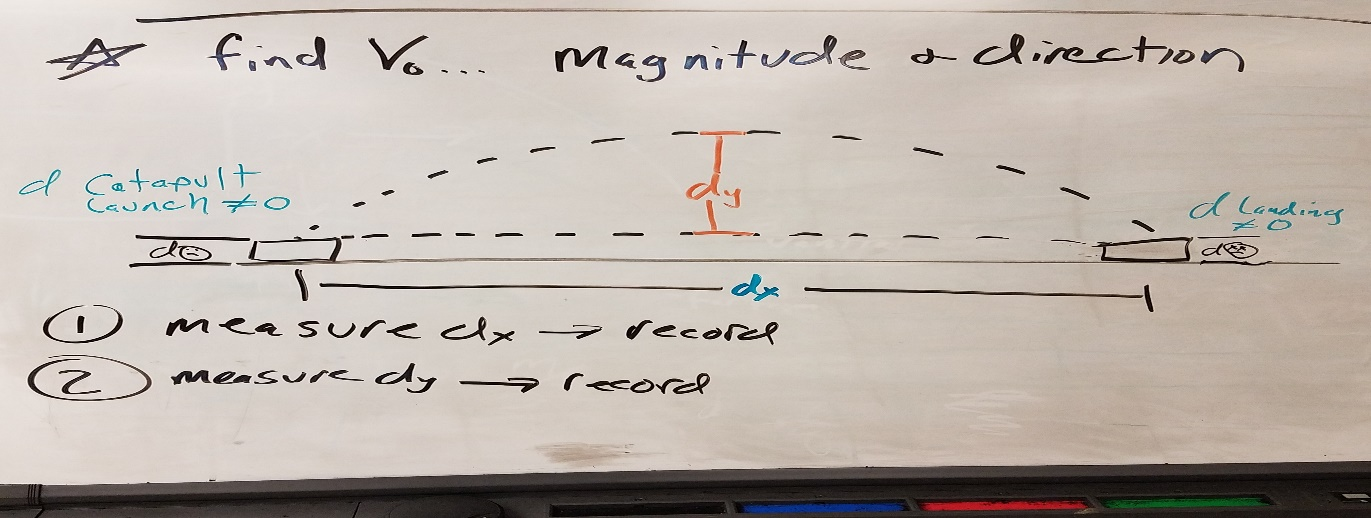 ☆ find V₀... Magnitude & direction
d Catapult
Launch ≠ 0
dy
d Landing
≠ 0
d☹
d☹
dx
① measure dx → record
② measure dy → record